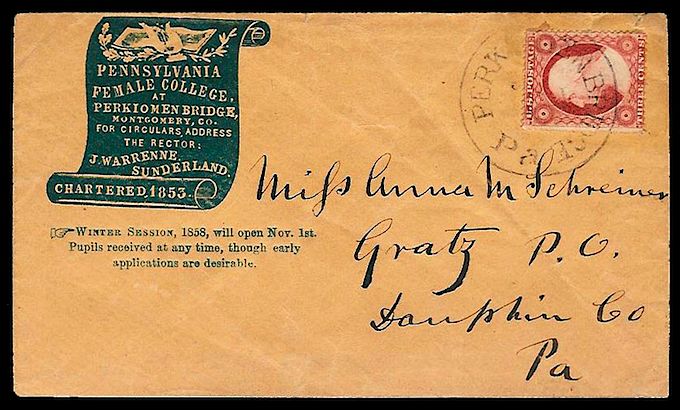 PENNSYLVANIA
FEMALE COLLEGE,
AT
PERKIOMEN BRIDGE,
MONTGOMERY, CO.
FOR CIRCULARS, ADDRESS
THE RECTOR:
J. WARRENNE
SUNDERLAND.
CHARTERED, 1853.
WINTER SESSION, 1858, will open Nov. 1st.
Pupils received at any time, though early
applications are desirable.
U.S. POSTAGE
THREE CENTS
PERK
Pa
Miſs Anna M Schreiner
Gratz P. O.
Dauphin Co
Pa